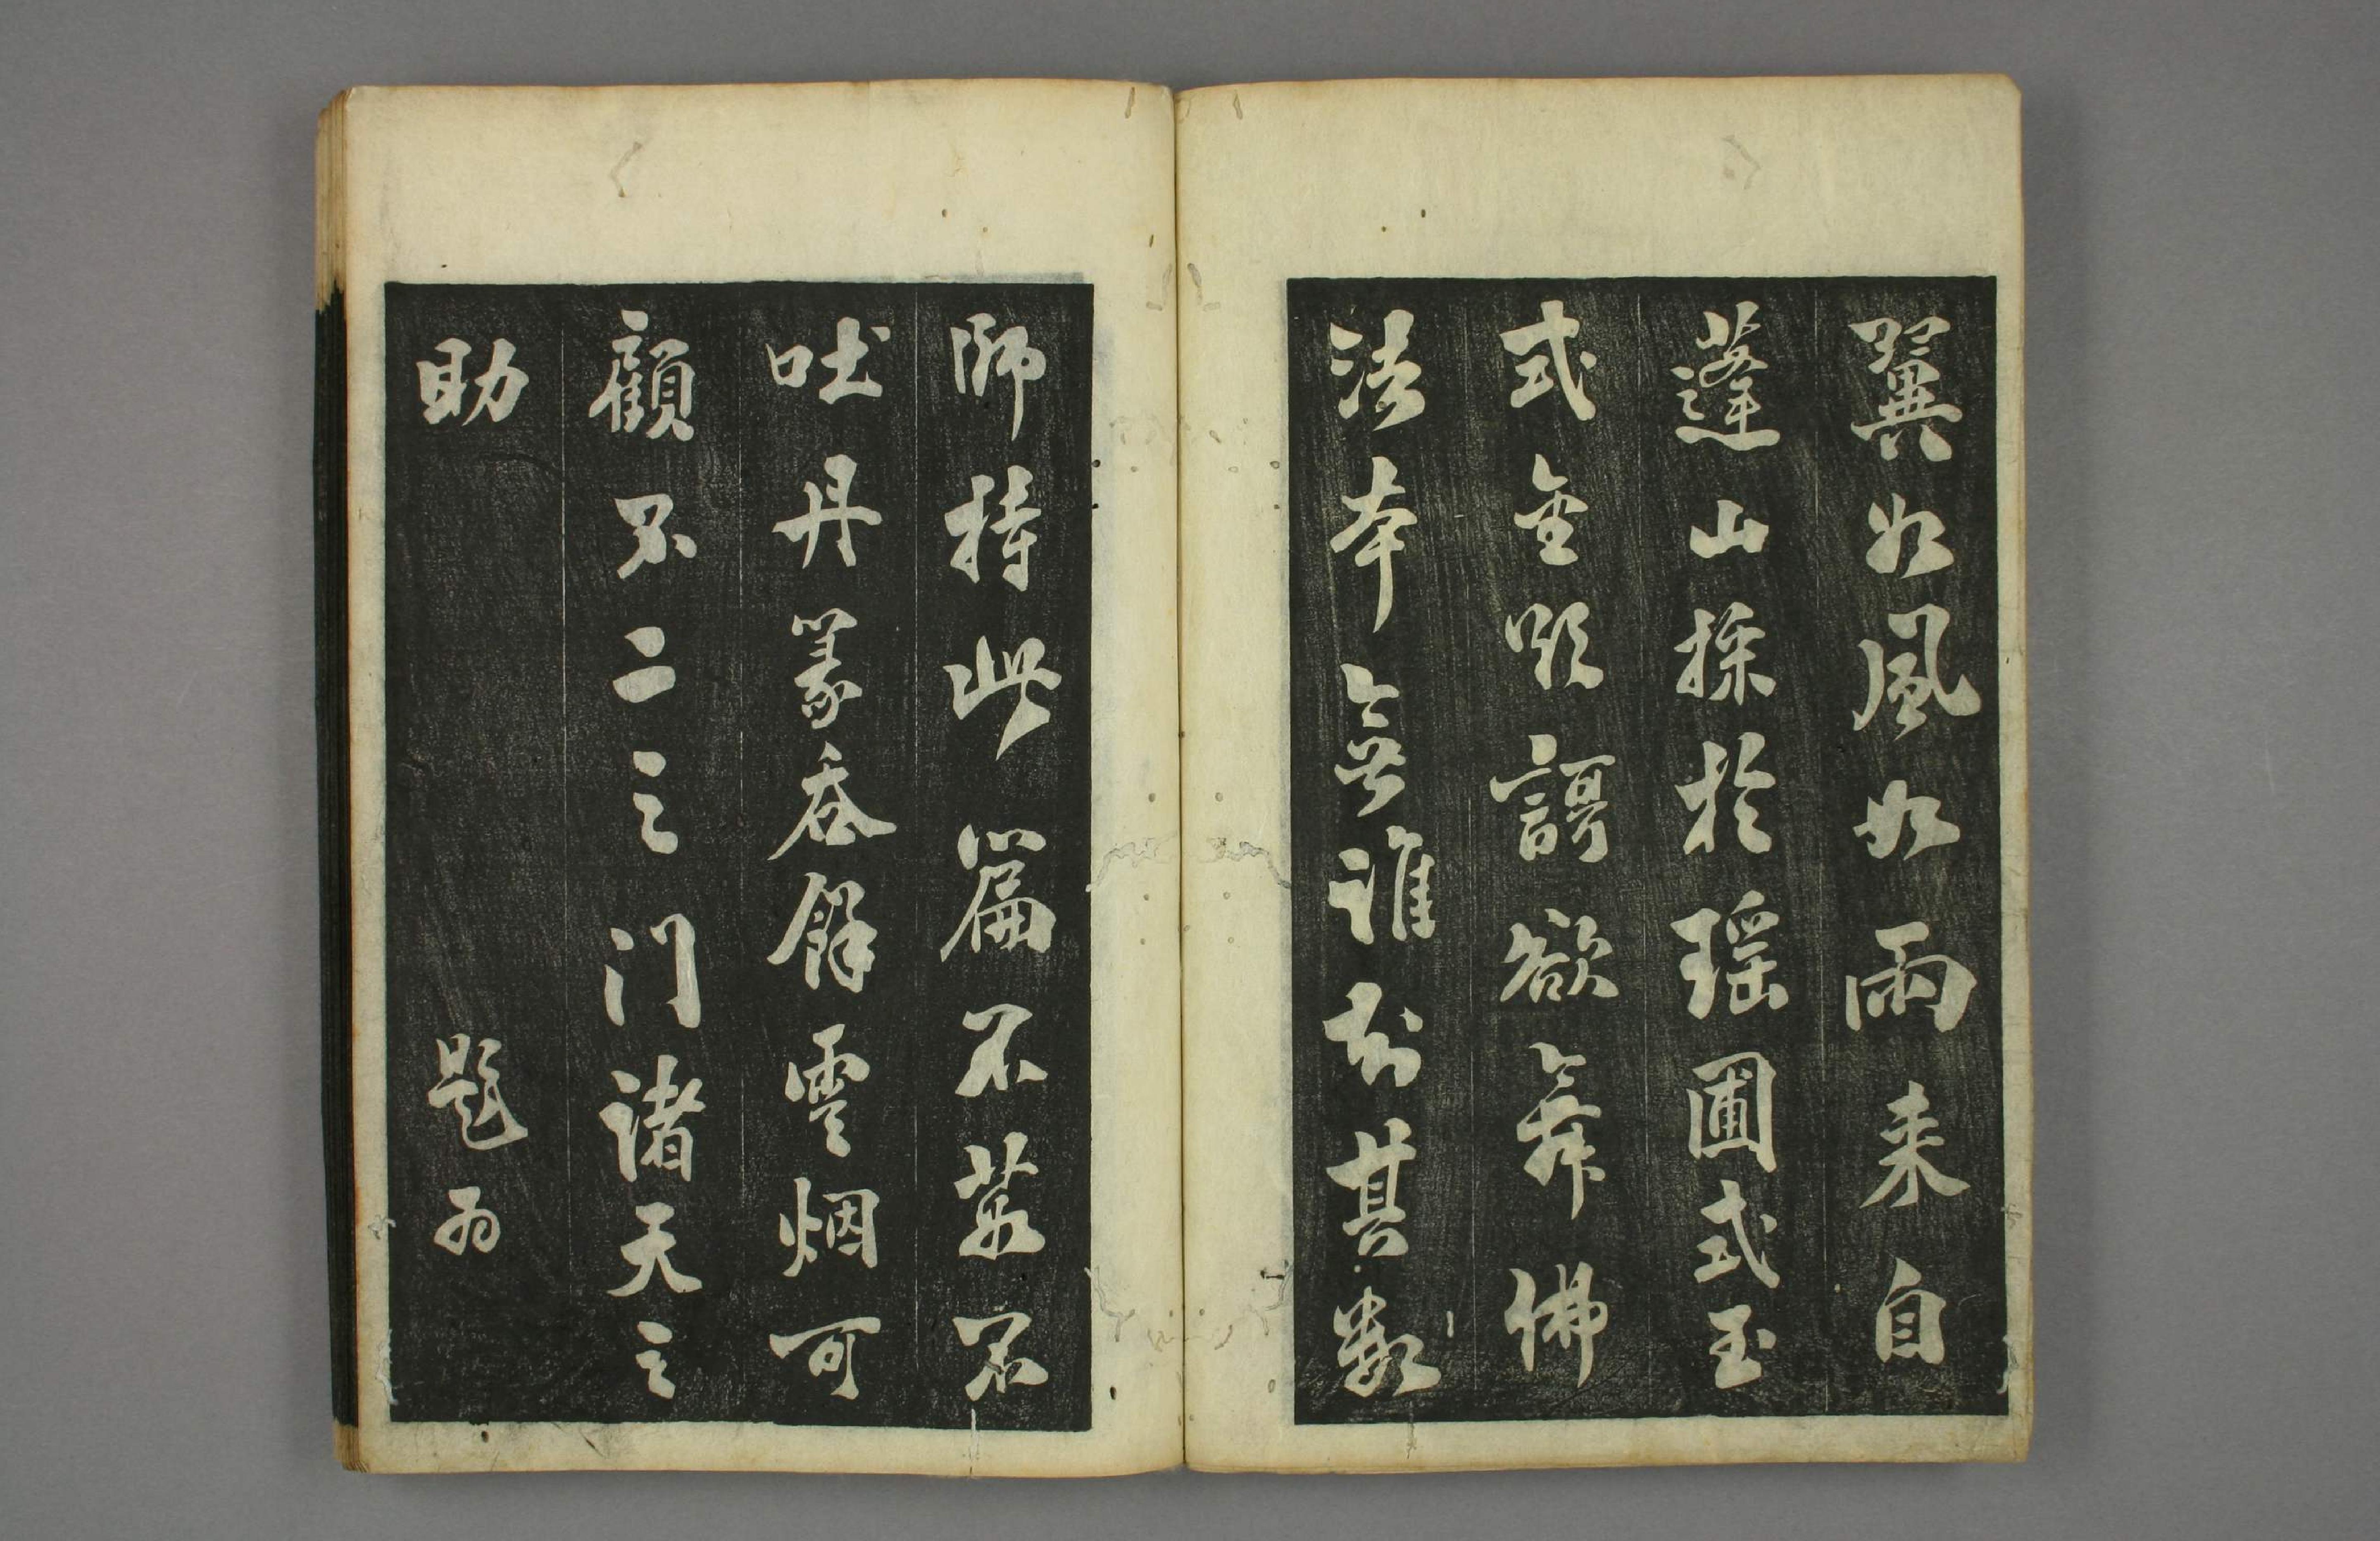 翼如風如雨来自
蓬山採於瑶圃式玉
式金照謌欲舞佛
法本無誰於其數
師持此篇不落不
吐丹篆吞餘雲烟可
顧不二之门諸天之
助 題为